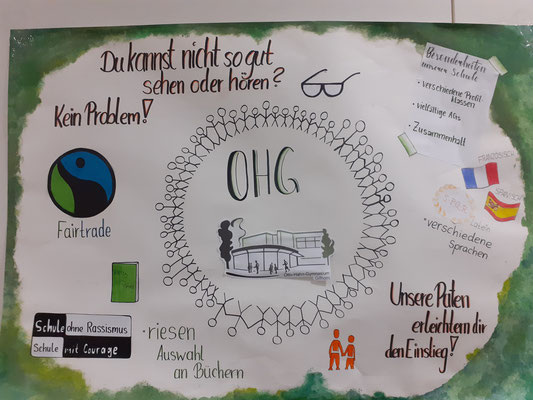 Du kannst nicht so gut
sehen oder hören?
Kein Problem!
Besonderheiten
unserer Schule
• verschiedene Profil
klassen
• vielfältige AGs
• Zusammenhalt
OHG
Fairtrade
FRANZÖSISCH
SPANISCH
Latein
• verschiedene
Sprachen
Otto-Hahn-Gymnasium
Schule ohne Rassismus
Schule mit Courage
• riesen
Auswahl
an Büchern
Unsere Paten
erleichtern dir
den Einstieg!